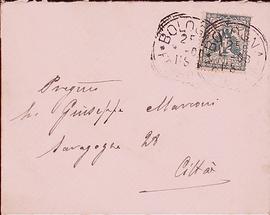 BOLOGNA
25
Pregmo
Sr. Giuseppe Marconi
Saragozza 28
Città